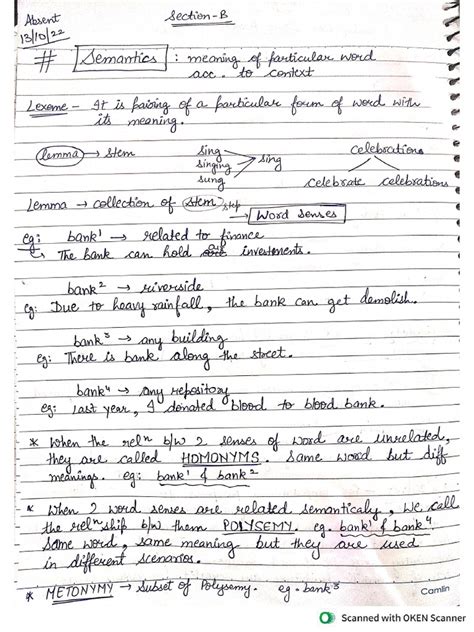 Absent
13/10/22
Section-B
# Semantics : meaning of particular word
acc. to context
Lexeme - It is pairing of a particular form of word with
its meaning.
lemma → stem
sing
singing
sung
sing
celebrations
celebrate celebrations
Lemma → collection of stem
→ Word senses
eg: bank¹ → related to finance
↳ The bank can hold investements.
bank² → riverside
eg: Due to heavy rainfall, the bank can get demolish.
bank³ → any building
eg: There is bank along the street.
bank⁴ → any repository
eg: Last year, I donated blood to blood bank.
* When the relⁿ b/w 2 senses of word are unrelated,
they are called HOMONYMS. Same word but diff
meanings. eg: bank¹ & bank²
* When 2 word senses are related semanticaly, we call
the relⁿship b/w them POLYSEMY. eg. bank¹ & bank⁴
Same word, same meaning but they are used
in different scenarios.
* METONYMY → Subset of Polysemy. eg - bank³
Camlin
Scanned with OKEN Scanner